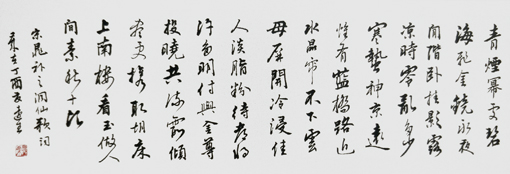 青煙冪處碧
海飛金鏡永夜
閒階卧桂影露
凉時零亂多少
寒螿神京遠
惟有藍橋路近
水晶帘不下雲
母屏開冷浸佳
人淡脂粉待都將
許多明付與金尊
投曉共流霞傾
尽更攜取胡床
上南樓看玉做人
間素秋千頃
宋晁补之洞仙歌詞
丁酉